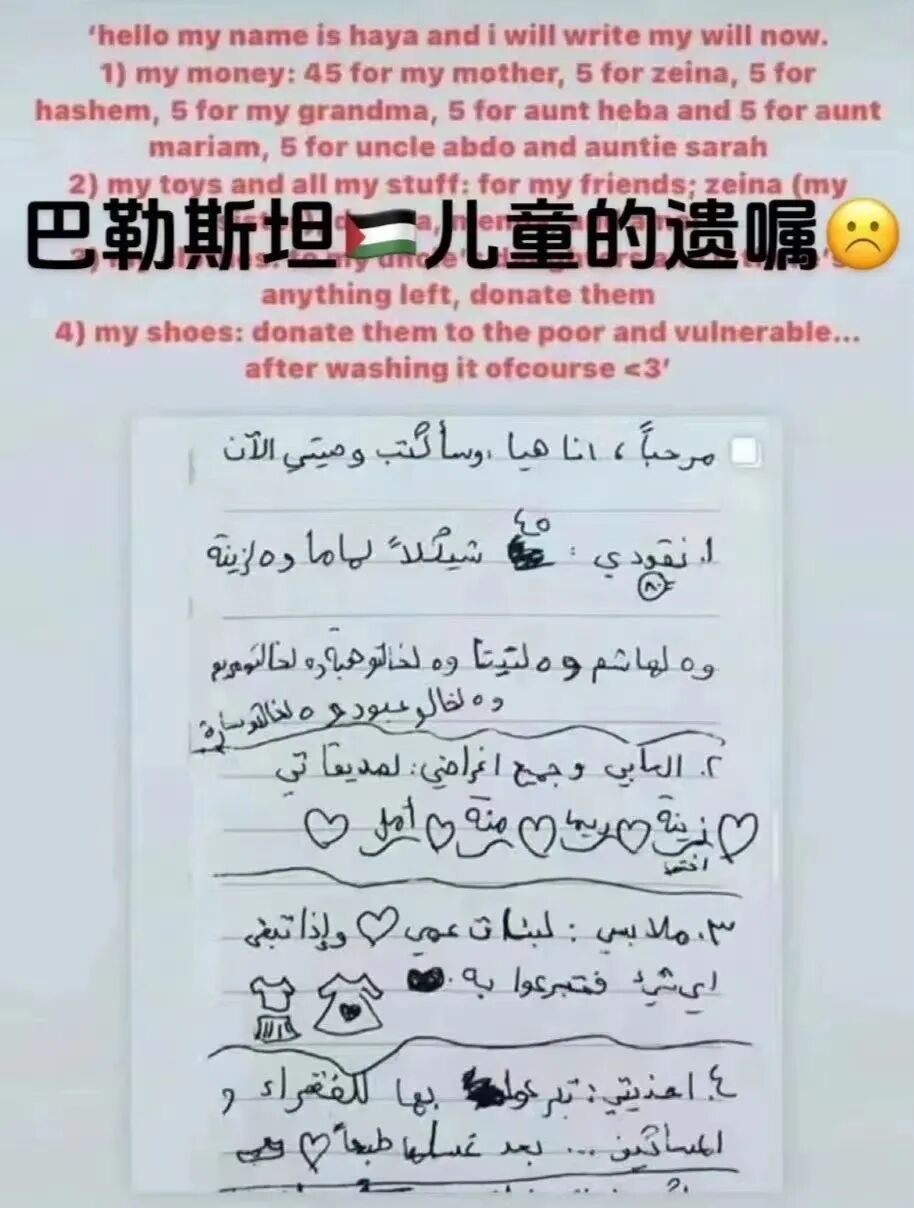 ‘hello my name is haya and i will write my will now.
1) my money: 45 for my mother, 5 for zeina, 5 for
hashem, 5 for my grandma, 5 for aunt heba and 5 for aunt
mariam, 5 for uncle abdo and auntie sarah
2) my toys and all my stuff: for my friends; zeina (my
巴勒斯坦🇵🇸儿童的遗嘱☹️
anything left, donate them
4) my shoes: donate them to the poor and vulnerable...
after washing it ofcourse <3’
مرحباً ، انا هيا ، وسأكتب وصيتي الآن
٤٥
١. نقودي : شيكلاً لماما و ٥ لزينة
٨٠
و ٥ لهاشم و ٥ لتيتا و ٥ لخالتو هبة و ٥ لخالتو مريم
و ٥ لخالو عبود و ٥ لخالتو سارة
٢. العابي و جميع اغراضي : لصديقاتي
♡ زينة ♡ ريما ♡ منة ♡ أمل ♡
اختي
٣. ملابسي : لبنات عمي ♡ وإذا تبقى
اي شيء فتبرعوا به
٤. احذيتي : تبرعوا بها للفقراء و
المساكين ... بعد غسلها طبعاً ♡